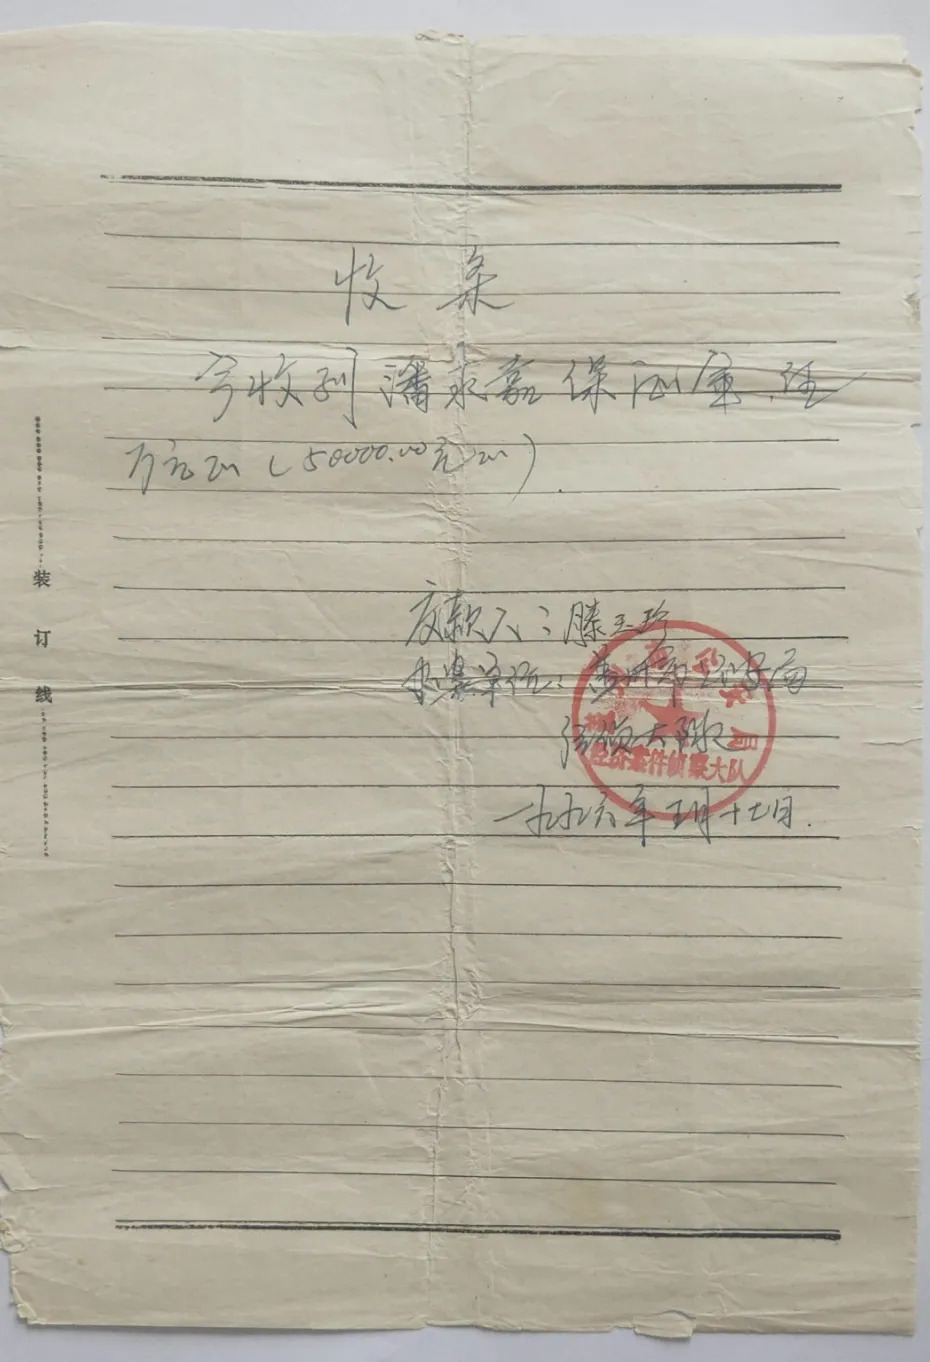 收条
今收到潘永嘉保证金伍
万元正（50000.00元正）.
交款人：滕玉珍
办案单位：黄州市公安局
经侦大队
公安局
经济案件侦察大队
一九九六年五月十七日.
装订线